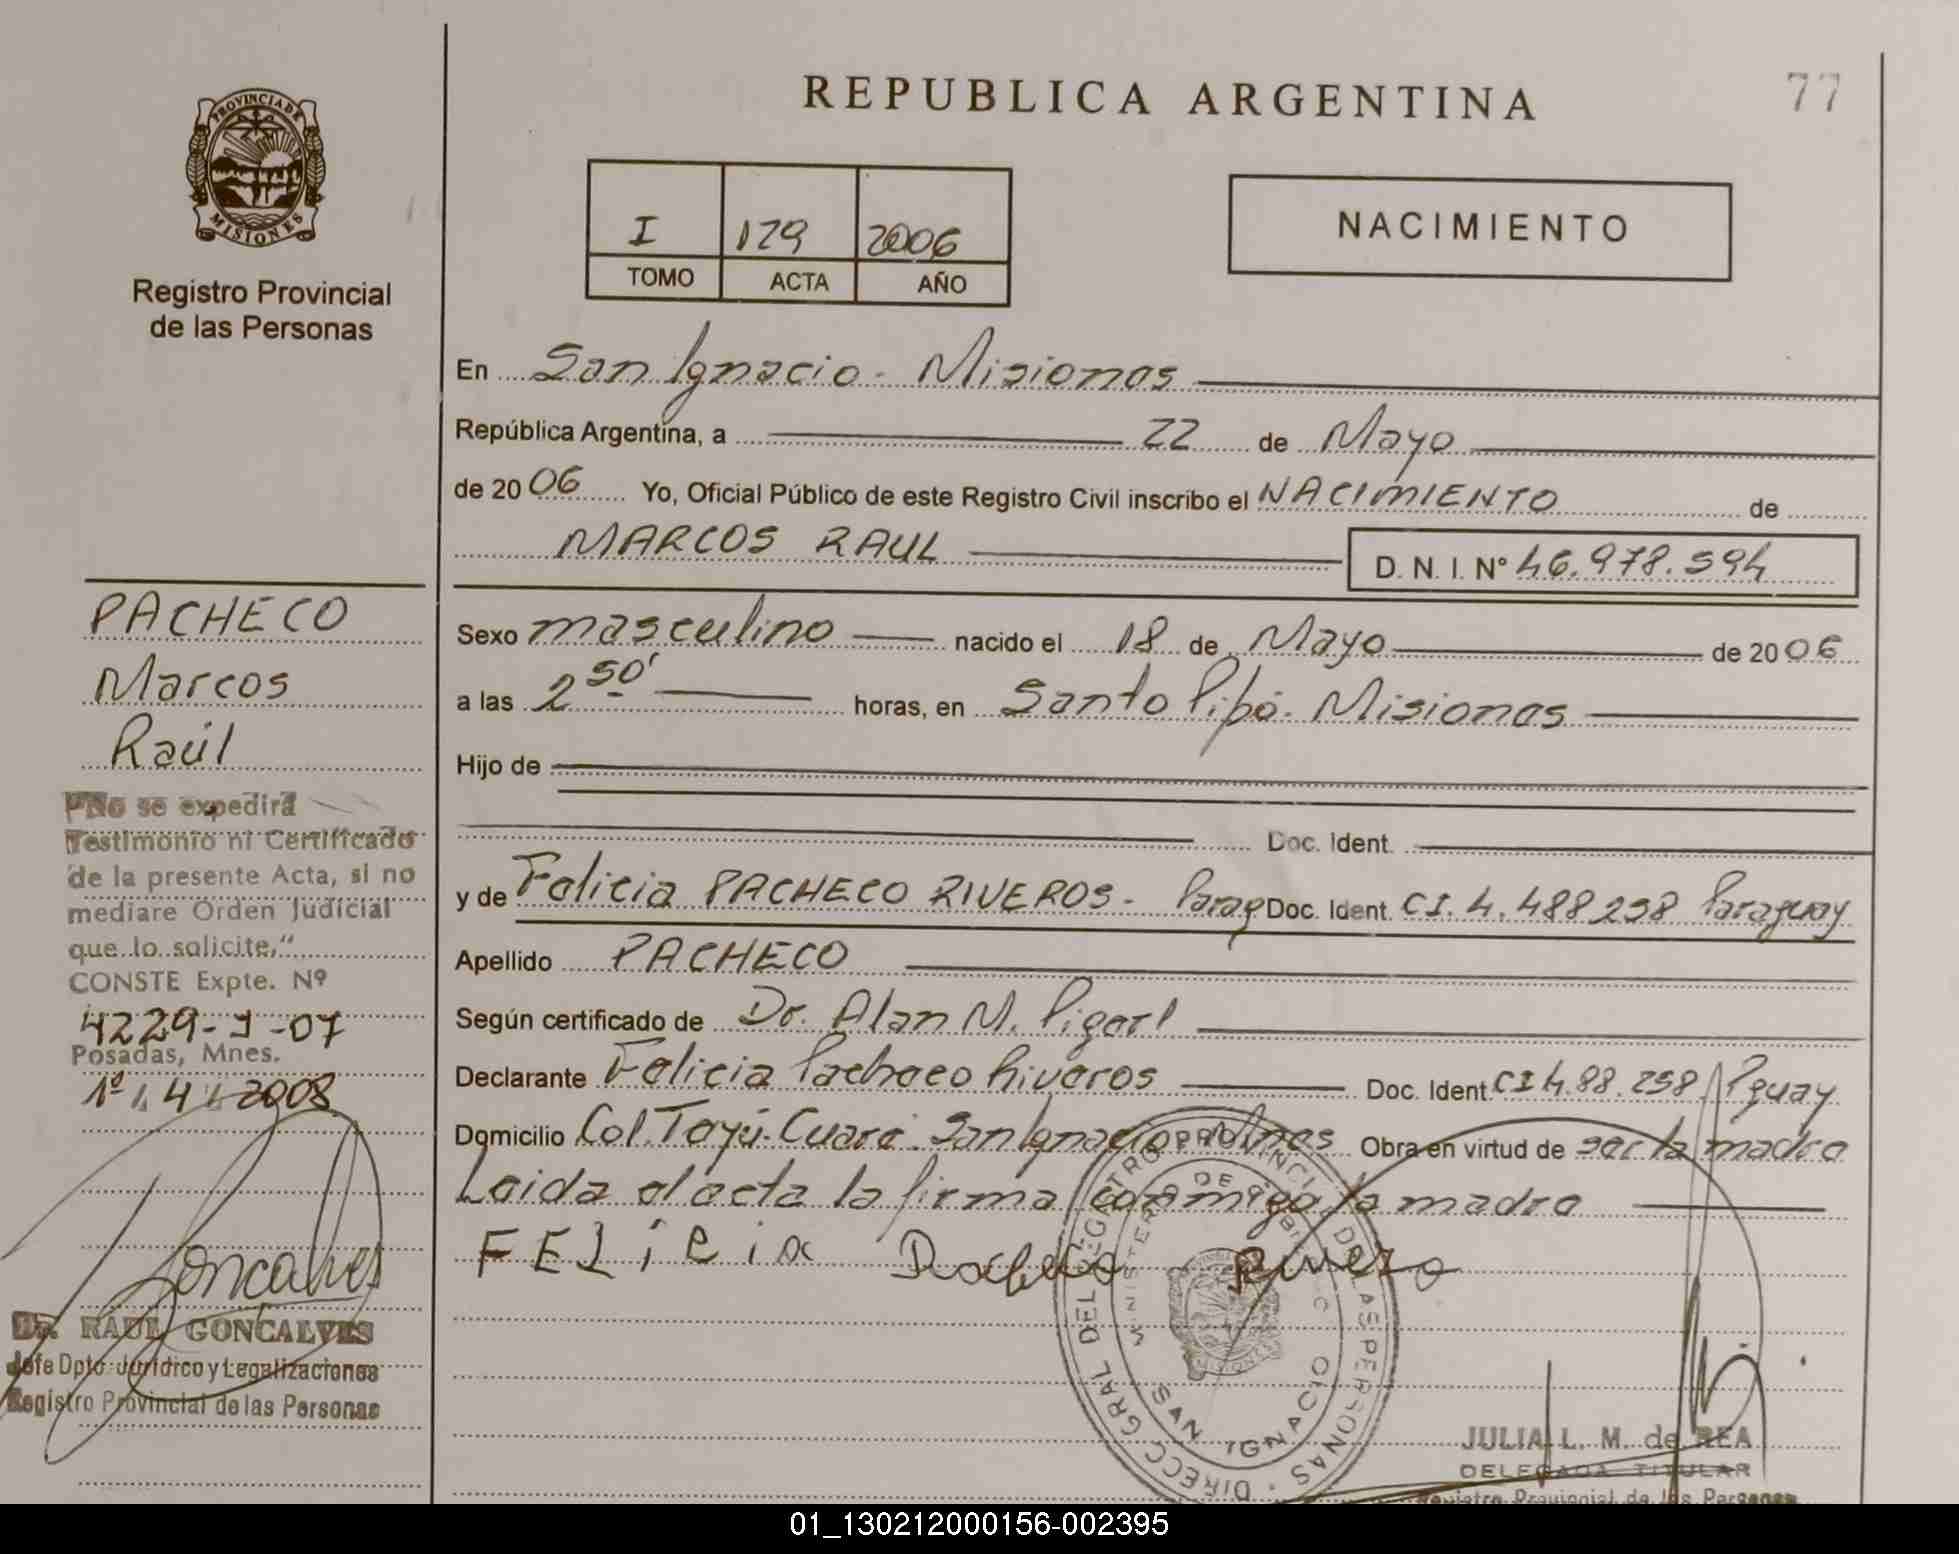 REPUBLICA ARGENTINA
77
PROVINCIA DE
MISIONES
Registro Provincial
de las Personas
I 129 2006
TOMO ACTA AÑO
NACIMIENTO
En San Ignacio - Misiones
República Argentina, a 22 de Mayo
de 2006 Yo, Oficial Público de este Registro Civil inscribo el NACIMIENTO de
MARCOS RAUL D. N. I. Nº 46.978.594
Sexo masculino nacido el 18 de Mayo de 2006
a las 2 50' horas, en Santo Pipó - Misiones
Hijo de
Doc. Ident.
y de Felicia PACHECO RIVEROS - Parag Doc. Ident. CI. 4.488258 Paraguay
Apellido PACHECO
Según certificado de Dr. Alan M.
Declarante Felicia Pacheco Riveros Doc. Ident. CI 4.88.258 Pguay
Domicilio Col. Teyú-Cuaré San Ignacio Mnes Obra en virtud de ser la madre
Leida el acta la firma conmigo, la madre
FELicia Pacheco Rivero
PACHECO
Marcos
Raúl
"No se expedirá
Testimonio ni Certificado
de la presente Acta, si no
mediare Orden Judicial
que lo solicite,"
CONSTE Expte. Nº
4229-J-07
Posadas, Mnes.
1º 4 2008
Goncalves
Dr. RAUL GONCALVES
Jefe Dpto. Jurídico y Legalizaciones
Registro Provincial de las Personas
DIRECC GRAL DEL REGISTRO PROVINCIAL DE LAS PERSONAS
MINISTERIO DE GOBIERNO
SAN IGNACIO
MISIONES
JULIA L. M. de REA
DELEGADA TITULAR
Registro Provincial de las Personas
01_130212000156-002395